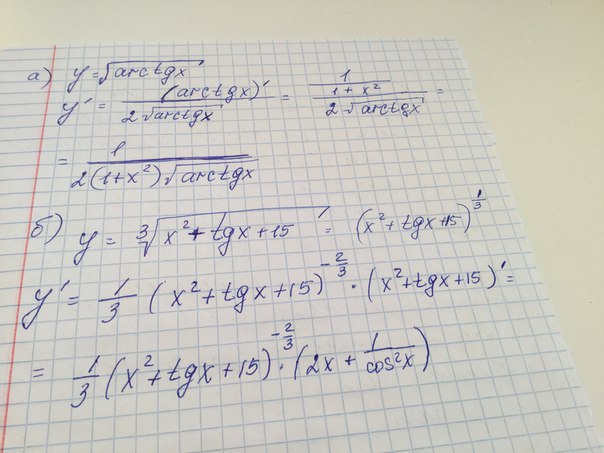 а) y = √arctgx
y' = (arctgx)' / 2√arctgx = 1/(1 + x²) / 2√arctgx =
= 1 / 2(1+x²)√arctgx
б) y = ∛(x² + tgx + 15) = (x² + tgx + 15)^(1/3)
y' = 1/3 (x² + tgx + 15)^(-2/3) · (x² + tgx + 15)' =
= 1/3 (x² + tgx + 15)^(-2/3) · (2x + 1/cos²x)